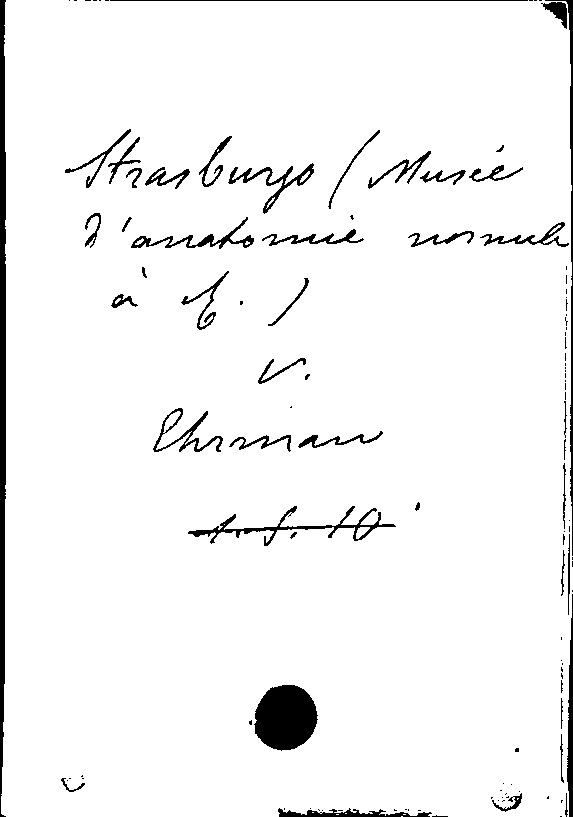 Strasburgo (Musée
d'anatomie normale
à E. )
v.
Ehrman
A. S. 10